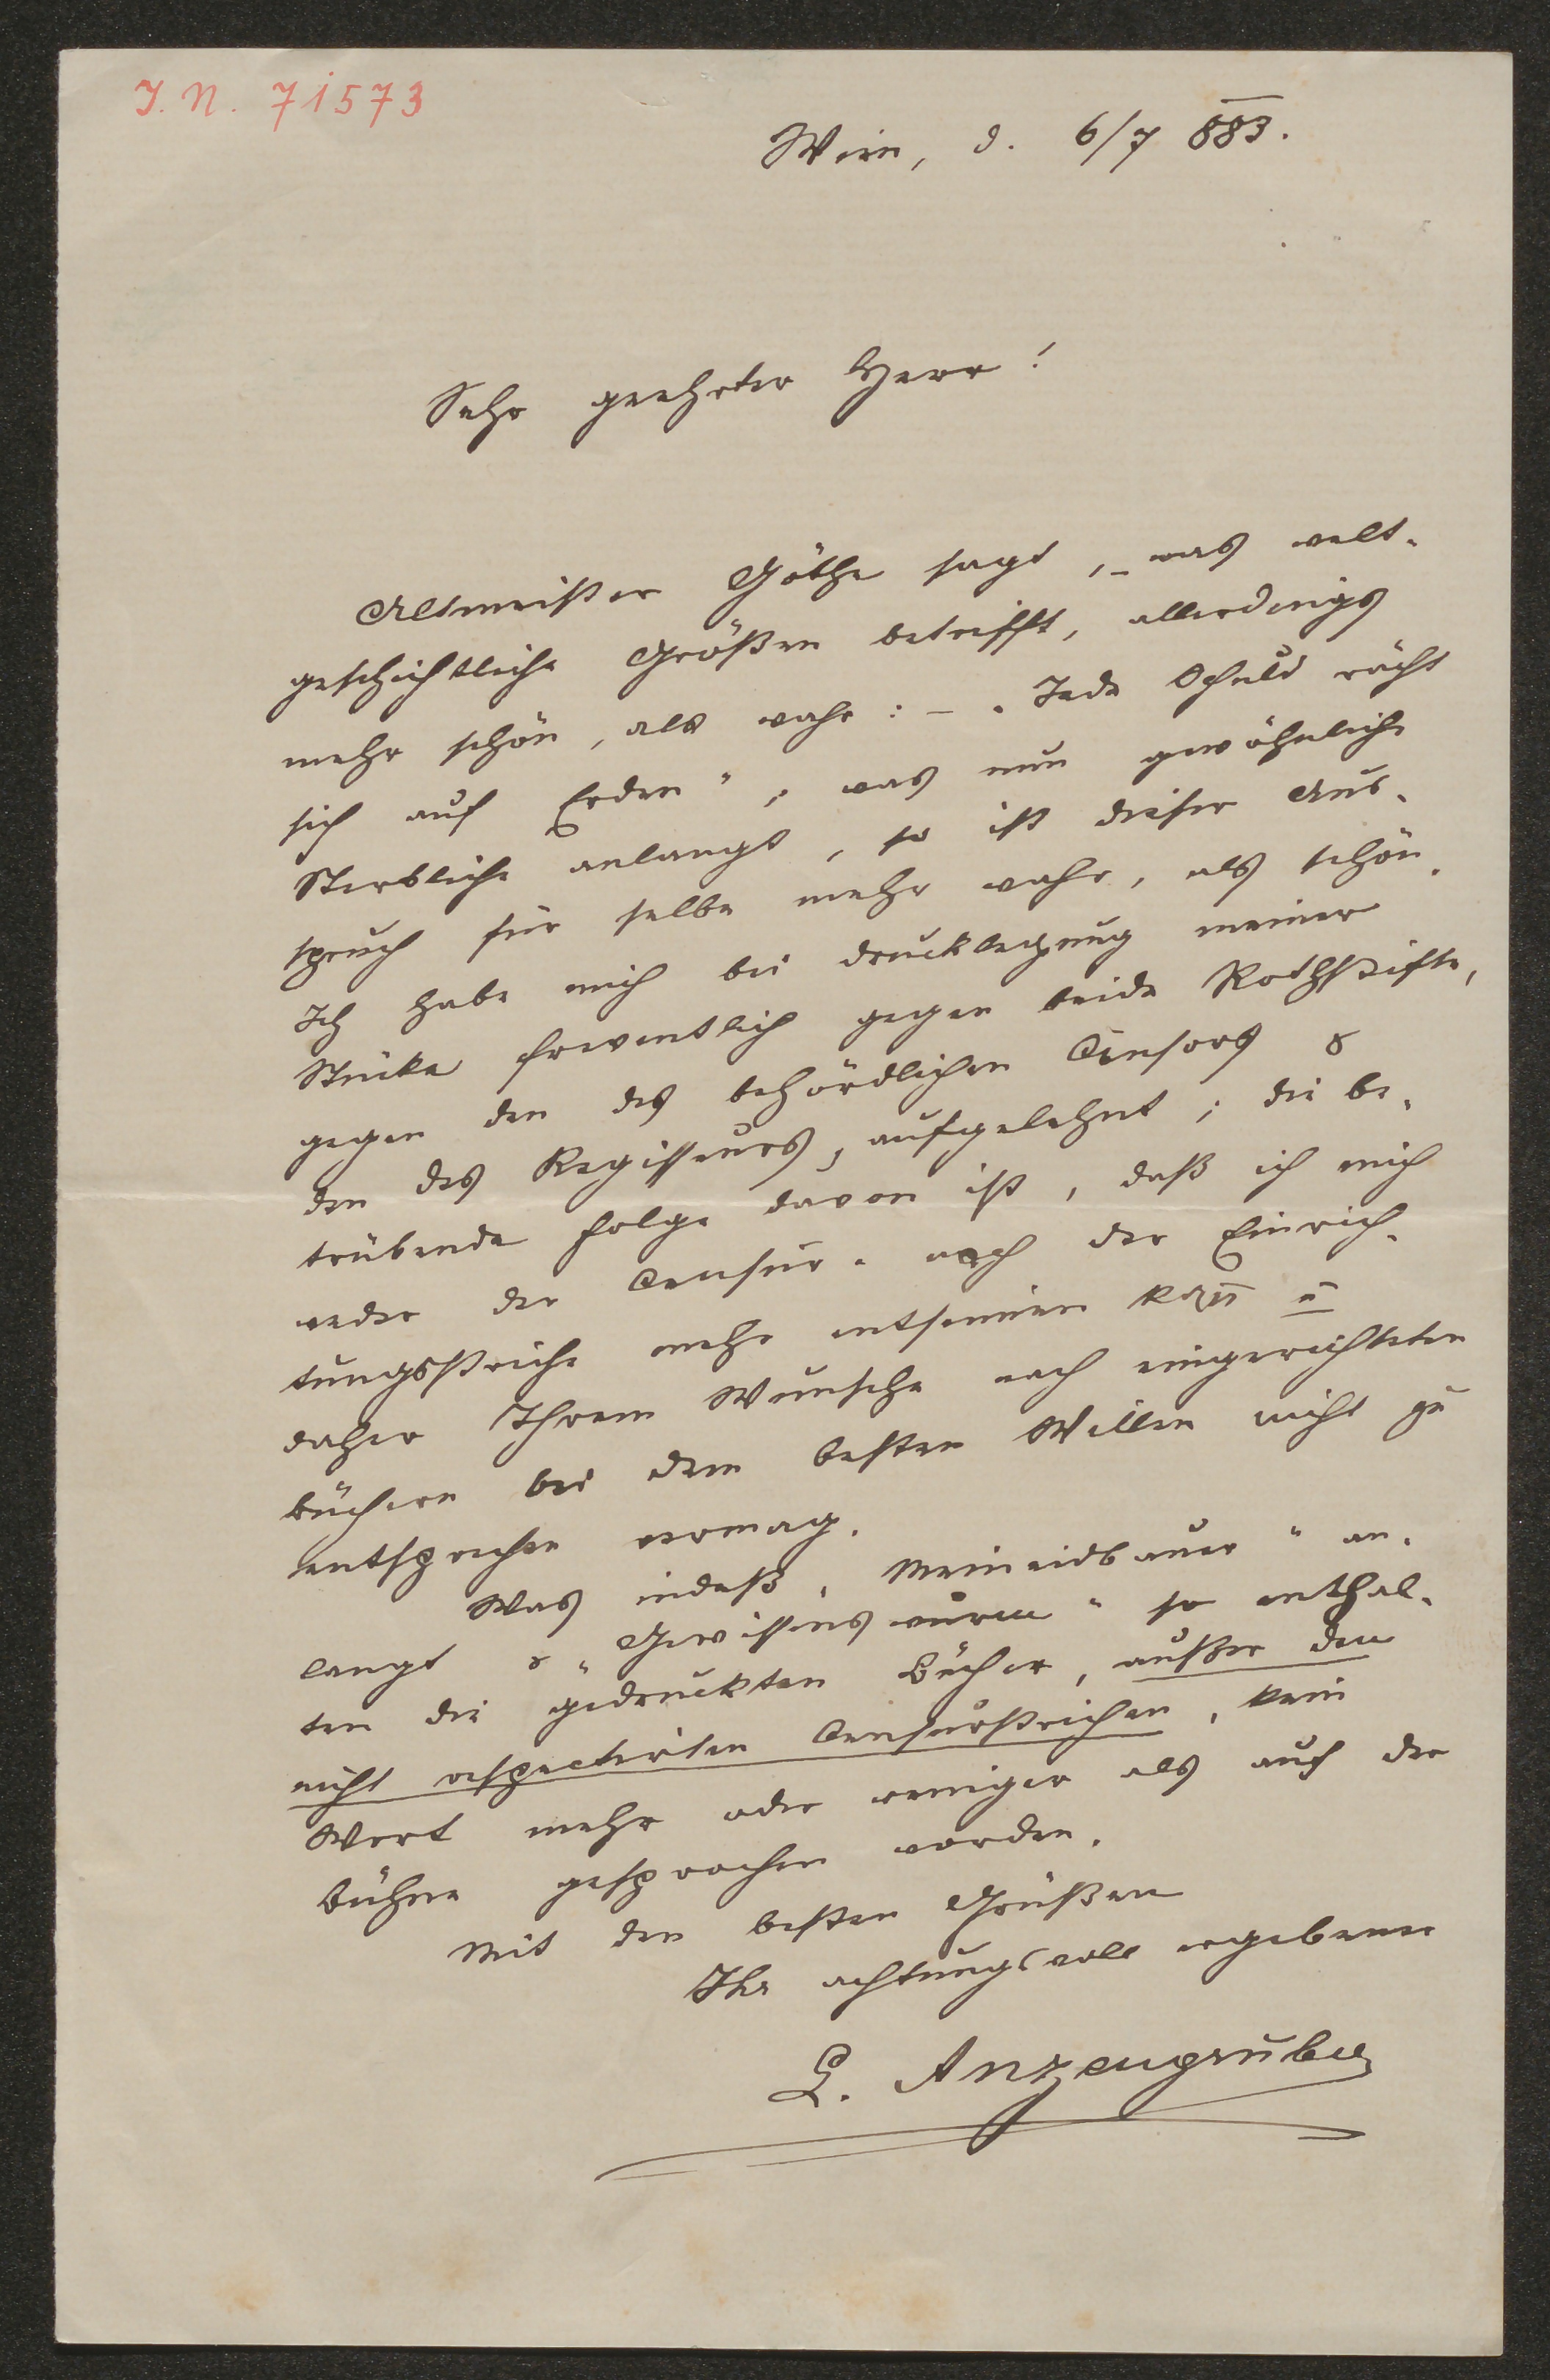 J. N. 71573
Wien, d. 6/7 883.
Sehr geehrter Herr!
Altmeister Göthe sagt, – was welt-
geschichtliche Größen betrifft, allerdings
mehr schön, als wahr: – „Jede Schuld rächt
sich auf Erden", was nun gewöhnliche
Sterbliche anlangt, so ist dieser Aus-
spruch für selbe mehr wahr, als schön.
Ich habe mich bei Drucklegung meiner
Stücke freventlich gegen beide Rothstifte,
gegen den des behördlichen Censors &
den des Regisseurs, aufgelehnt; die be-
trübende Folge davon ist, daß ich mich
weder der Censur- noch der Einrich-
tungsstriche mehr entsinnen kann u
daher Ihrem Wunsche nach eingerichteten
Büchern bei dem besten Willen nicht zu
entsprechen vermag.
Was indeß „Meineidbauer" an-
langt & „Gewissenswurm" so enthal-
ten die gedruckten Bücher, außer den
nicht respectirten Censurstrichen, kein
Wort mehr oder weniger als auf der
Bühne gesprochen worden.
Mit den besten Grüßen
Ihr achtungsvoll ergebener
L. Anzengruber